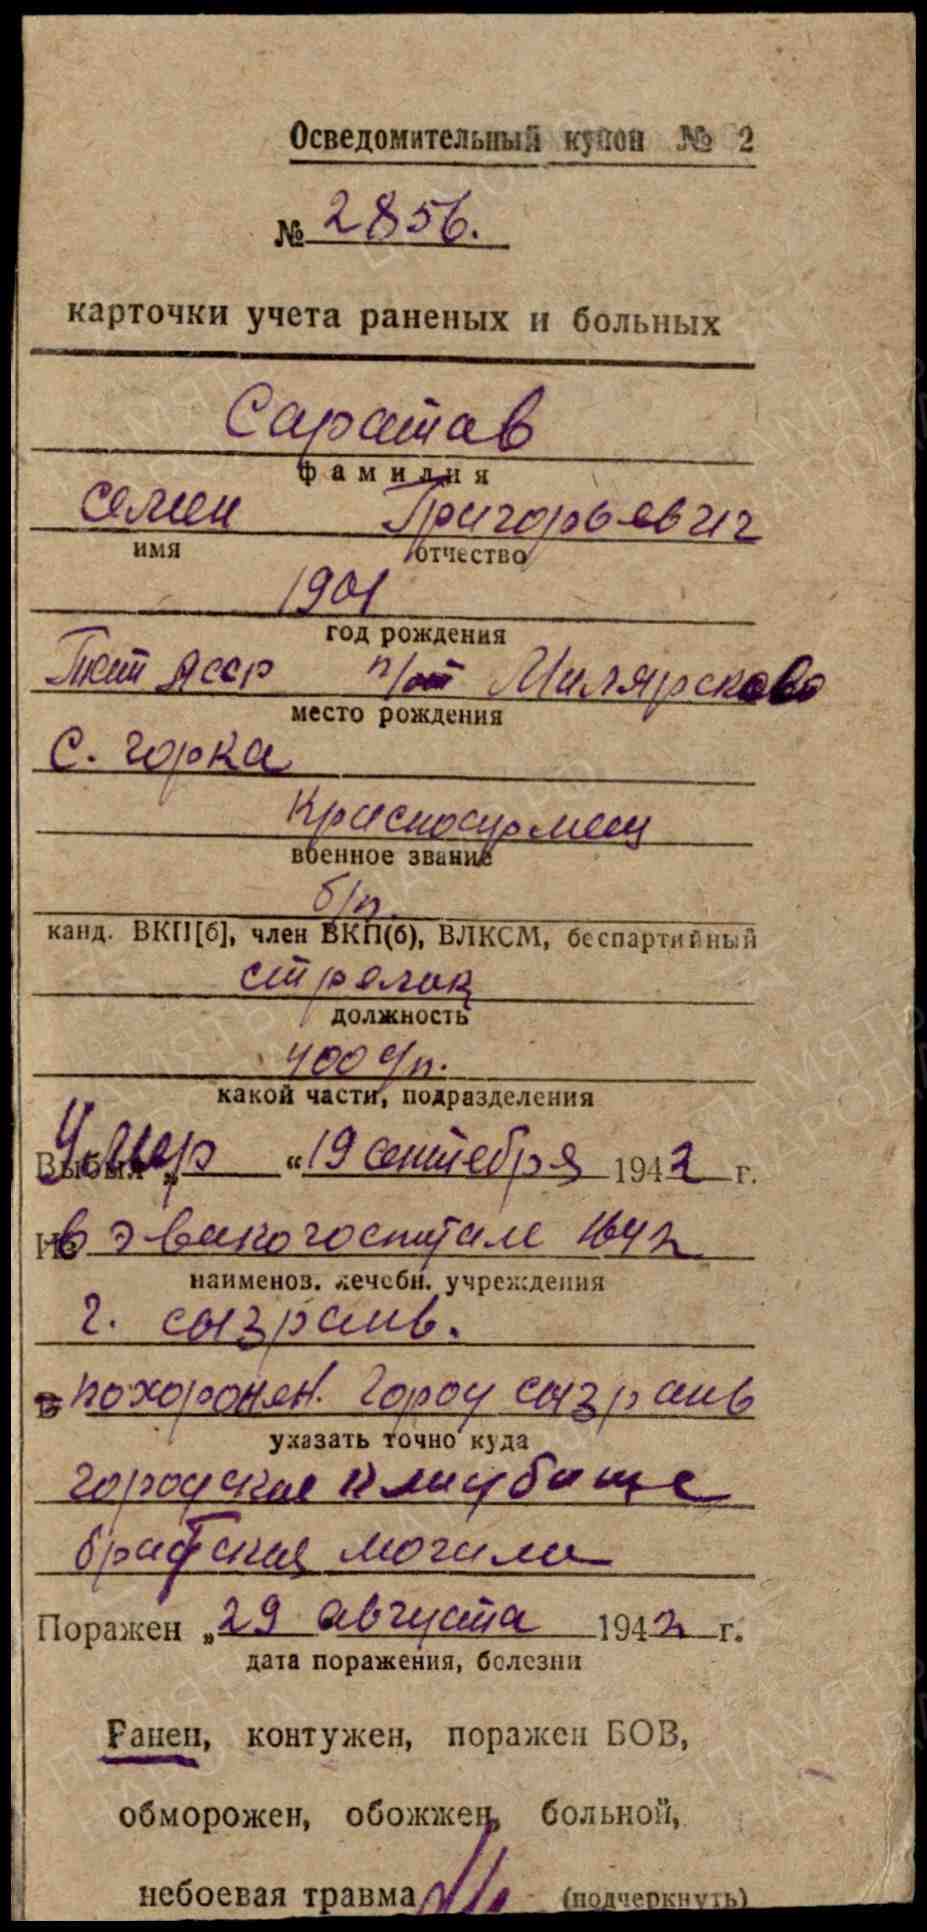 Осведомительный купон № 2
№ 2856.
карточки учета раненых и больных
Саратав
фамилия
семен Григорьевич
имя отчество
1901
год рождения
АССР п/от
место рождения
с. горка
Красноармеец
военное звание
б/п.
канд. ВКП[б], член ВКП(б), ВЛКСМ, беспартийный
стрелок
должность
400 с/п.
какой части, подразделения
Выбыл „ Умер “ 19 сентебря 1942 г.
в эвакогоспитале 1642
наименов. лечебн. учреждения
г. сызрань.
В похоронен. город сызрань
указать точно куда
городская кладбище
братская могила
Поражен „ 29 августа 1942 г.
дата поражения, болезни
Ранен, контужен, поражен БОВ,
обморожен, обожжен, больной,
небоевая травма (подчеркнуть)